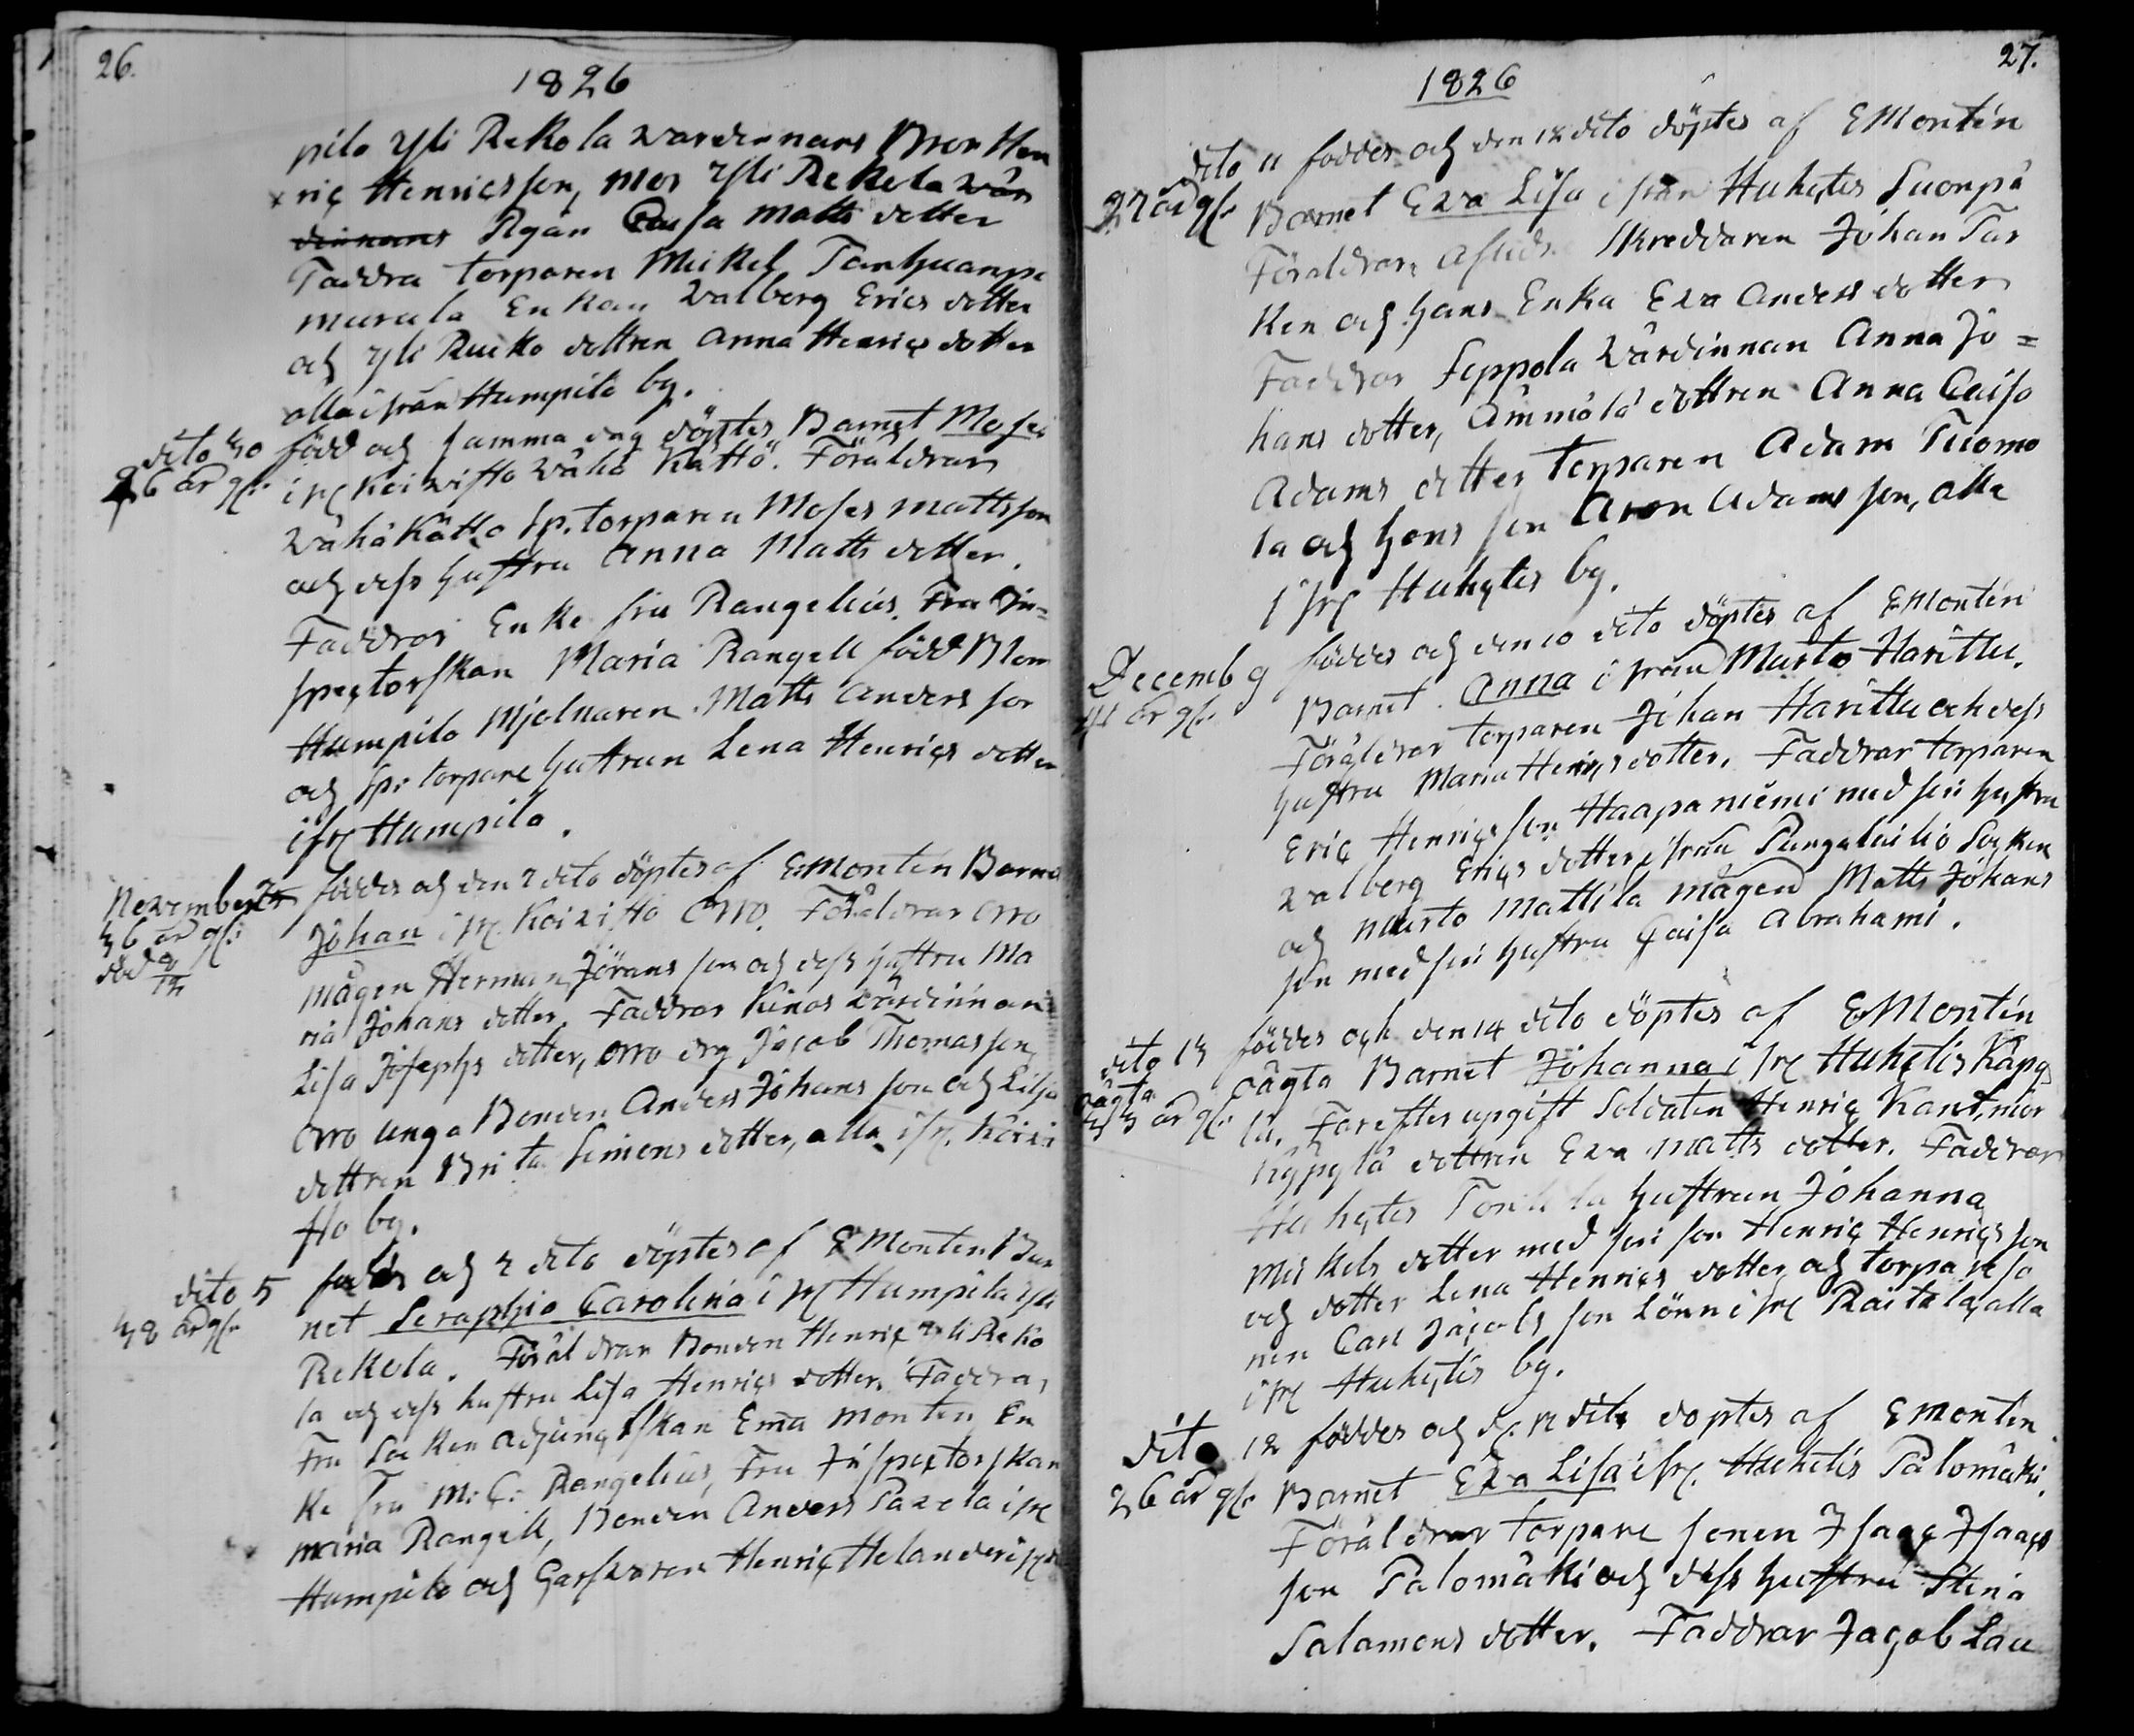 26.
1826
pilo Yli Rekola wardinnans Bror Hen
ric Henricsson, mor Yli Rekola wär
dinnans Pigan Caisa Matts dotter
Faddra torparen Mickel Tamhuanpä
murula Enkan Walborg Erics dotter
och Yli Ruiko dottren Anna Henrics dotter
alla ifrån Humpila by.
dito 30 född och samma dag döptes Barnet Moses
26 år gl. ifr Koivisto Wähä Kåttö. Föräldrar
Wähä Kåttö sp. torparen Moses Mattsson
och dess hustru Anna Matts dotter.
Faddrar Enke fru Rangelius. Fru In-
spectorskan Maria Rangell född Blom
Humpila Mjölnaren Matts Anders son
och sp. torpare hustrun Lena Henrics dotter
ifr Humpila.
November föddes och den 7 dito döptes af EMontén Barnet
36 år gl. Johan ifr. Koivisto Orro. Föräldrar Orro
död
mågen Herman Jörans son och dess hustru Ma
ria Johans dotter. Faddrar Kinos wärdinnan
Lisa Josephs dotter, Orro drg Jacob Thomas son,
Orro unga Bonden Anders Johans son och Lilja
dottren Brita Simons dotter, alla ifr. Koivi
sto by.
dito 5 föddes och 7 dito döptes af EMontén Bar
38 år gl. net Seraphia Carolina ifr Humpila Yli
Rekola. Föräldrar Bonden Henric Yli Reko
la och dess hustru Lisa Henrics dotter. Faddrar
Fru Socken adjunctskan Ema Montén, En
ke fru M: C: Rangelius, Fru Inspectorskan
Maria Rangell, Bonden Anders Pavola ifr
Humpila och Garfvaren Henric Helander ifr
27.
1826
dito 11 föddes och den 12 dito döptes af EMontén
27 år gl. Barnet Eva Lisa ifrån Huhtis Suonpä
Föräldrar Aflidne Skreddaren Johan Tar
ken och hans Enka Eva Anders dotter
Faddrar Seppola Wärdinnan Anna Jo=
hans dotter, Ämmälä dottren Anna Caisa
Adams dotter torparen Adam Tuomo
la och hans son Aron Adams son, alla
ifr Huhtis by.
Decemb 9 föddes och den 10 dito döptes af EMontén
41 år gl. Barnet Anna ifrån Murto Harittu.
Föräldrar torparen Johan Harittu och dess
hustru Maria Henrics dotter. Faddrar torparen
Eric Henrics son Haapaniemi med sin hustru
Walborg Erics dotter ifrån Pungalaitio Socken
och Murto Mattila mågen Matts Johans
son med sin hustru Caisa Abrahami.
dito 13 föddes och den 14 dito döptes af EMontén
oägta oägta Barnet Johanna ifr Huhtis Käpy
33 år gl. lä. Far efter upgift Soldaten Henric Kant, mor
Käpylä dottren Eva Matts dotter. Faddrar
Huhtis hustrun Johanna
Mickels dotter med sin son Henric Henrics son
och dotter Lena Henrics dotter och torpare so
nen Carl Jacobs son Lönn ifr Raitala, alla
ifr Huhtis by.
dito 12 föddes och d. 17 dito döptes af EMontén
26 år gl. Barnet Eva Lisa ifr. Huhtis Palomäki.
Föräldrar torpare sonen Isaac Isaacs
son Palomäki och dess hustru Stina
Salamons dotter. Faddrar Jacob Lau